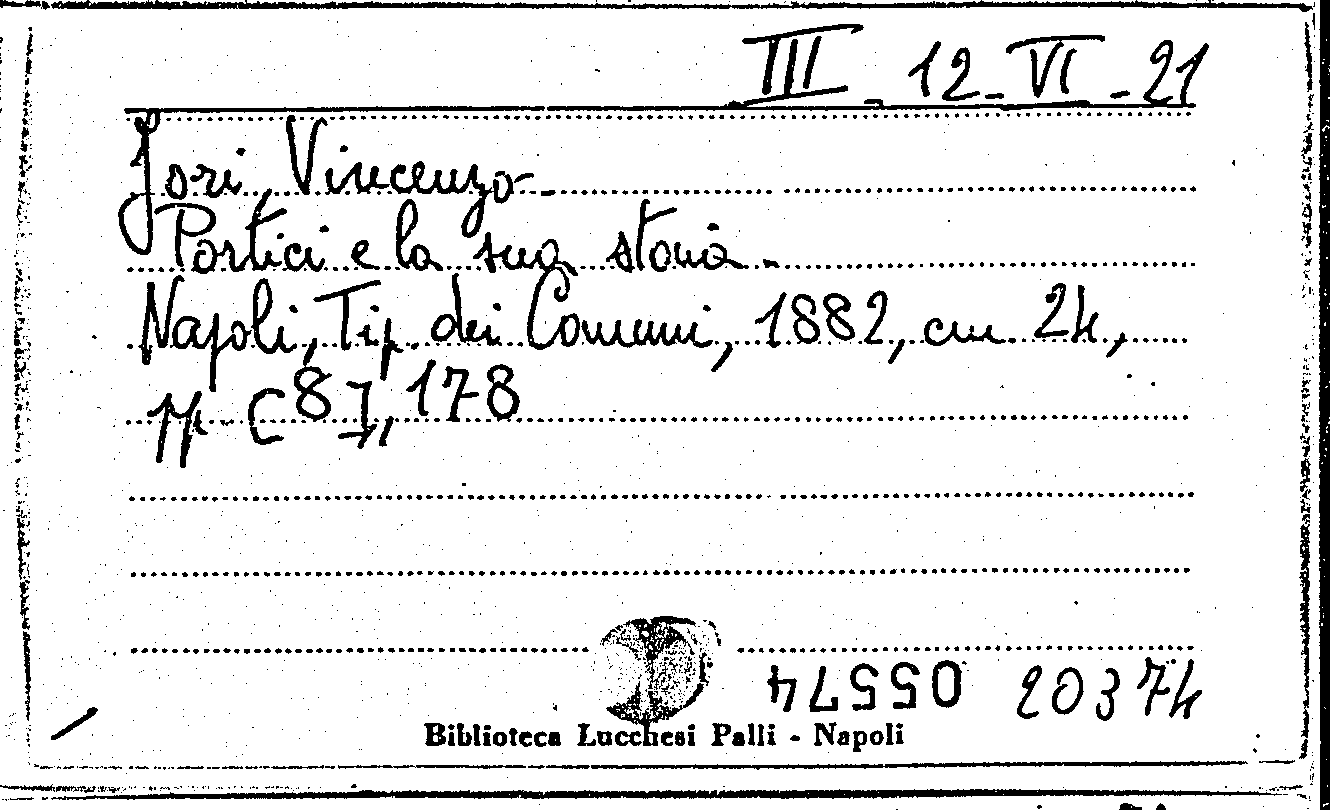 III - 12 - VI - 21
Jori, Vincenzo -
Portici e la sua storia -
Napoli, Tip. dei Comuni, 1882, cm. 24,
pp. [8], 178
05574 20374
Biblioteca Lucchesi Palli - Napoli